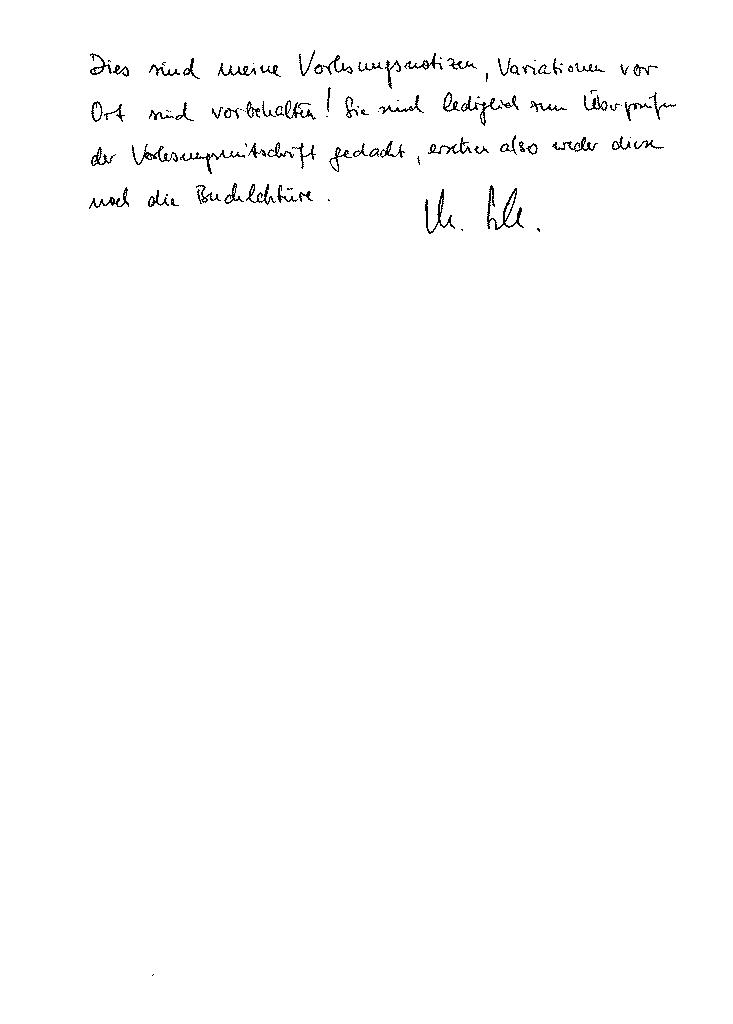 Dies sind meine Vorlesungsnotizen, Variationen vor
Ort sind vorbehalten! Sie sind lediglich zum Überprüfen
der Vorlesungsmitschrift gedacht, ersetzen also weder diese
noch die Buchlektüre.